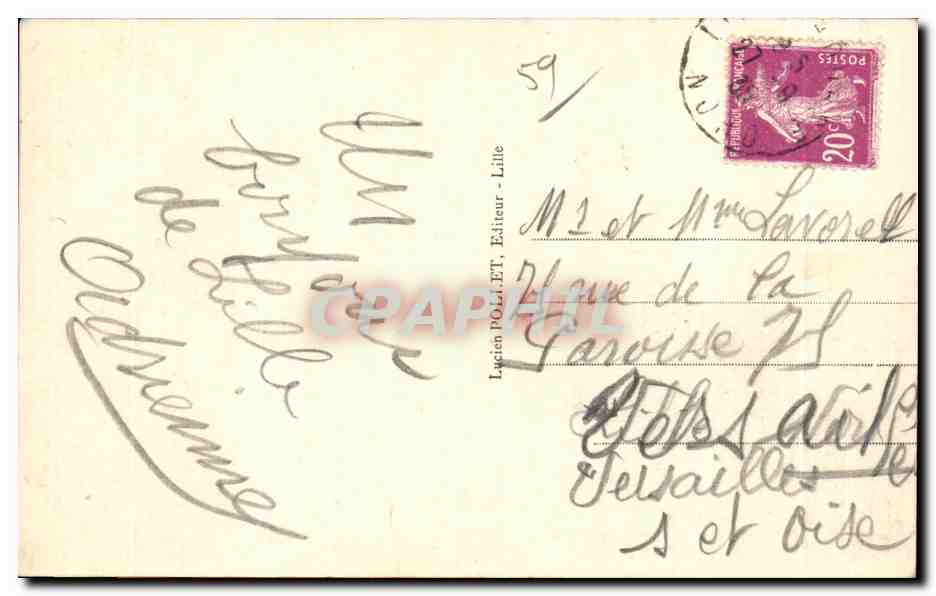 59/
Un
bonjour
de Lille
Andrienne
Lucien POLLET, Editeur - Lille
RÉPUBLIQUE FRANÇAISE
POSTES
20c
NORD
Mr et Mme Lavorel
71 rue de la
Paroisse 71
Versailles
Versailles
S et Oise
CPAPHIL